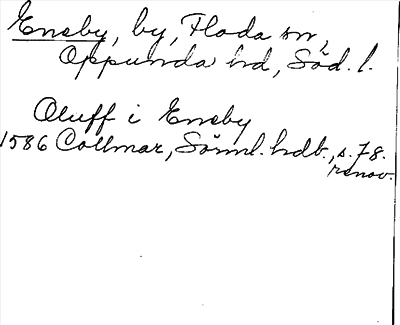 Eneby, by, Floda sn,
Oppunda hd, Söd. l.
Oluff i Eneby
1586 Collmar, Sörml. hdb., s. 78.
renov.